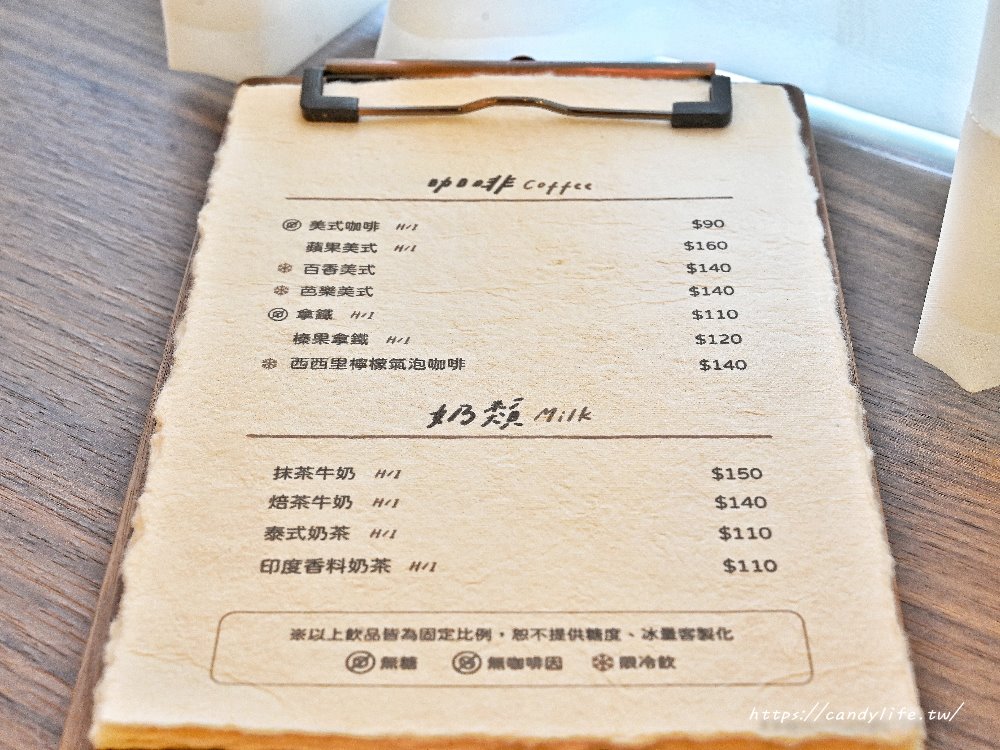 咖啡 Coffee
美式咖啡 H/I $90
蘋果美式 H/I $160
百香美式 $140
芭樂美式 $140
拿鐵 H/I $110
榛果拿鐵 H/I $120
西西里檸檬氣泡咖啡 $140
奶類 Milk
抹茶牛奶 H/I $150
焙茶牛奶 H/I $140
泰式奶茶 H/I $110
印度香料奶茶 H/I $110
※以上飲品皆為固定比例,恕不提供糖度、冰量客製化
無糖 無咖啡因 限冷飲
https://candylife.tw/